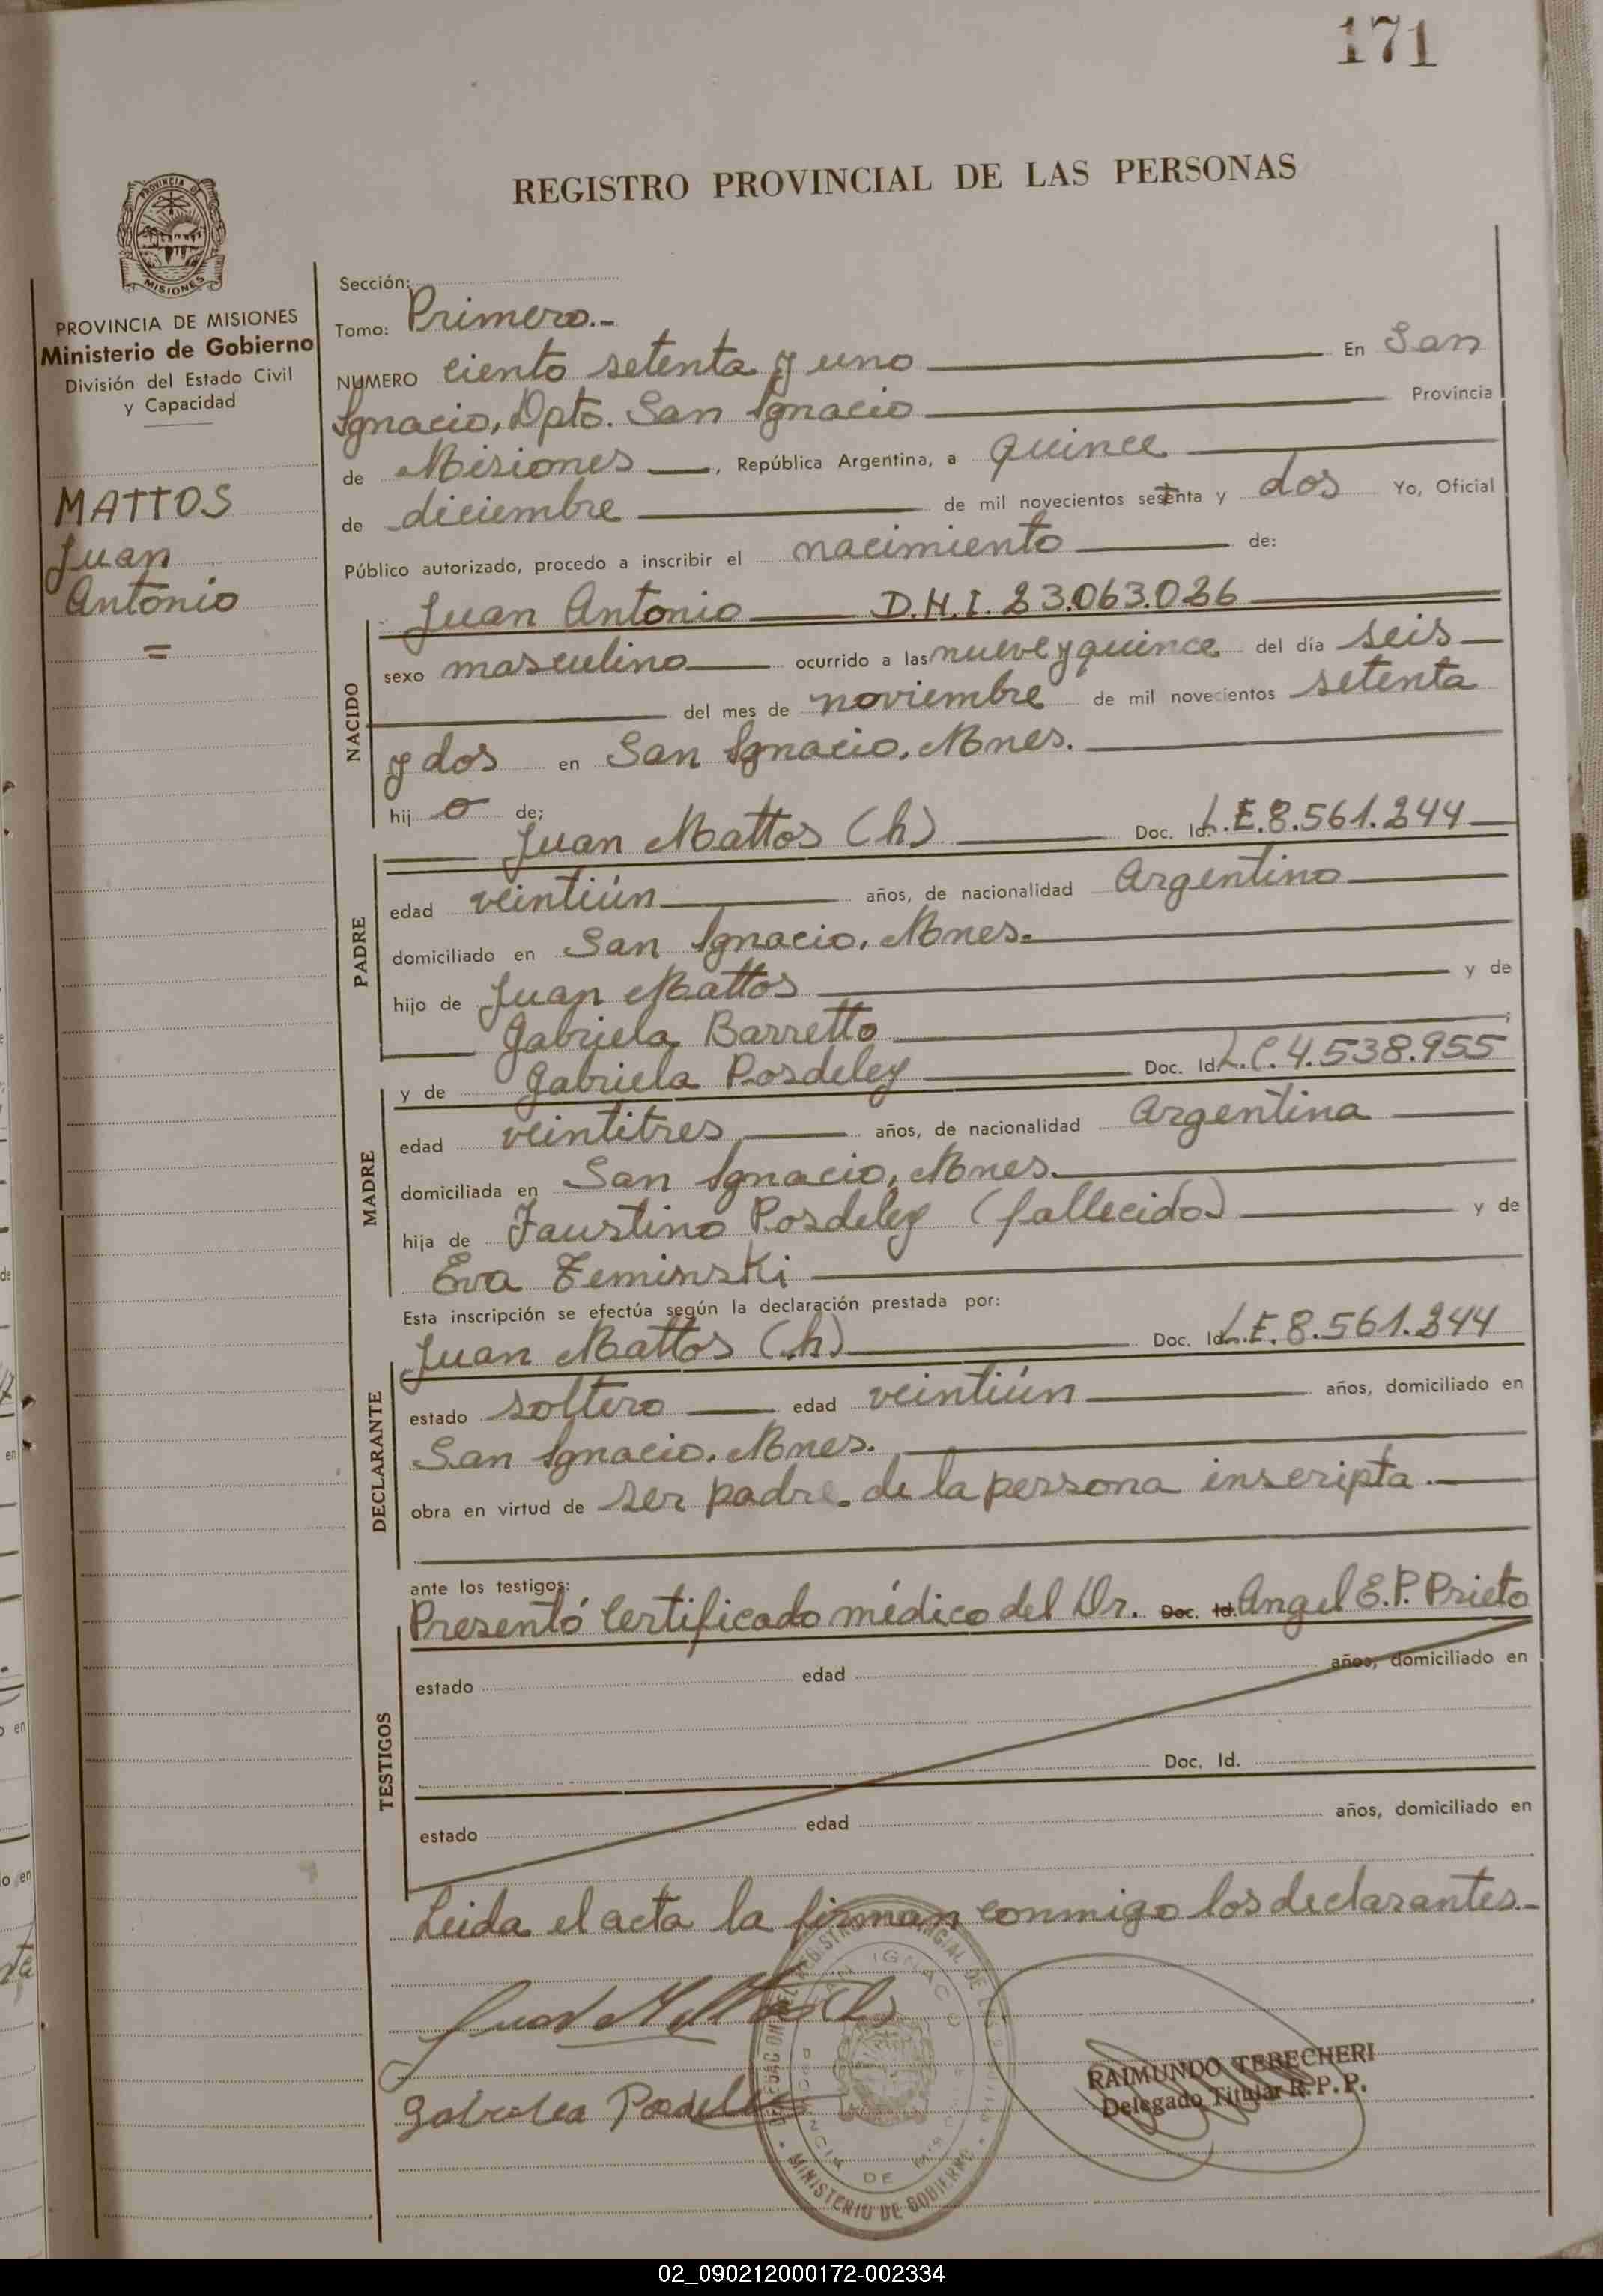 171
REGISTRO PROVINCIAL DE LAS PERSONAS
PROVINCIA DE
MISIONES
PROVINCIA DE MISIONES
Ministerio de Gobierno
División del Estado Civil
y Capacidad
MATTOS
Juan
Antonio
=
Sección:
Tomo: Primero.-
NUMERO ciento setenta y uno En San
Ignacio, Dpto. San Ignacio Provincia
de Misiones, República Argentina, a quince
de diciembre de mil novecientos setenta y dos Yo, Oficial
Público autorizado, procedo a inscribir el nacimiento de:
NACIDO
Juan Antonio D.N.I. 23.063.026
sexo masculino ocurrido a las nueve y quince del día seis
del mes de noviembre de mil novecientos setenta
y dos en San Ignacio, Mnes.
hij o de;
PADRE
Juan Mattos (h) Doc. Id. L.E. 8.561.244
edad veintiún años, de nacionalidad Argentino
domiciliado en San Ignacio, Mnes.
hijo de Juan Mattos y de
Gabriela Barretto
MADRE
y de Gabriela Posdeley Doc. Id. L.C. 4.538.955
edad veintitres años, de nacionalidad Argentina
domiciliada en San Ignacio, Mnes.
hija de Faustino Posdeley (fallecido) y de
Eva Zeminski
Esta inscripción se efectúa según la declaración prestada por:
DECLARANTE
Juan Mattos (h) Doc. Id. L.E. 8.561.244
estado soltero edad veintiún años, domiciliado en
San Ignacio, Mnes.
obra en virtud de ser padre de la persona inscripta.
ante los testigos:
TESTIGOS
Presentó Certificado médico del Dr. Doc. Id. Angel E.P. Prieto
estado edad años, domiciliado en
Doc. Id.
estado edad años, domiciliado en
Leida el acta la firman conmigo los declarantes.-
Juan Mattos (h)
Gabriela
DELEGACION DEL REGISTRO PROVINCIAL DE LAS
SAN IGNACIO
PROVINCIA DE MISIONES
MINISTERIO DE GOBIERNO
RAIMUNDO TERECHERI
Delegado Titular R.P.P.
02_090212000172-002334